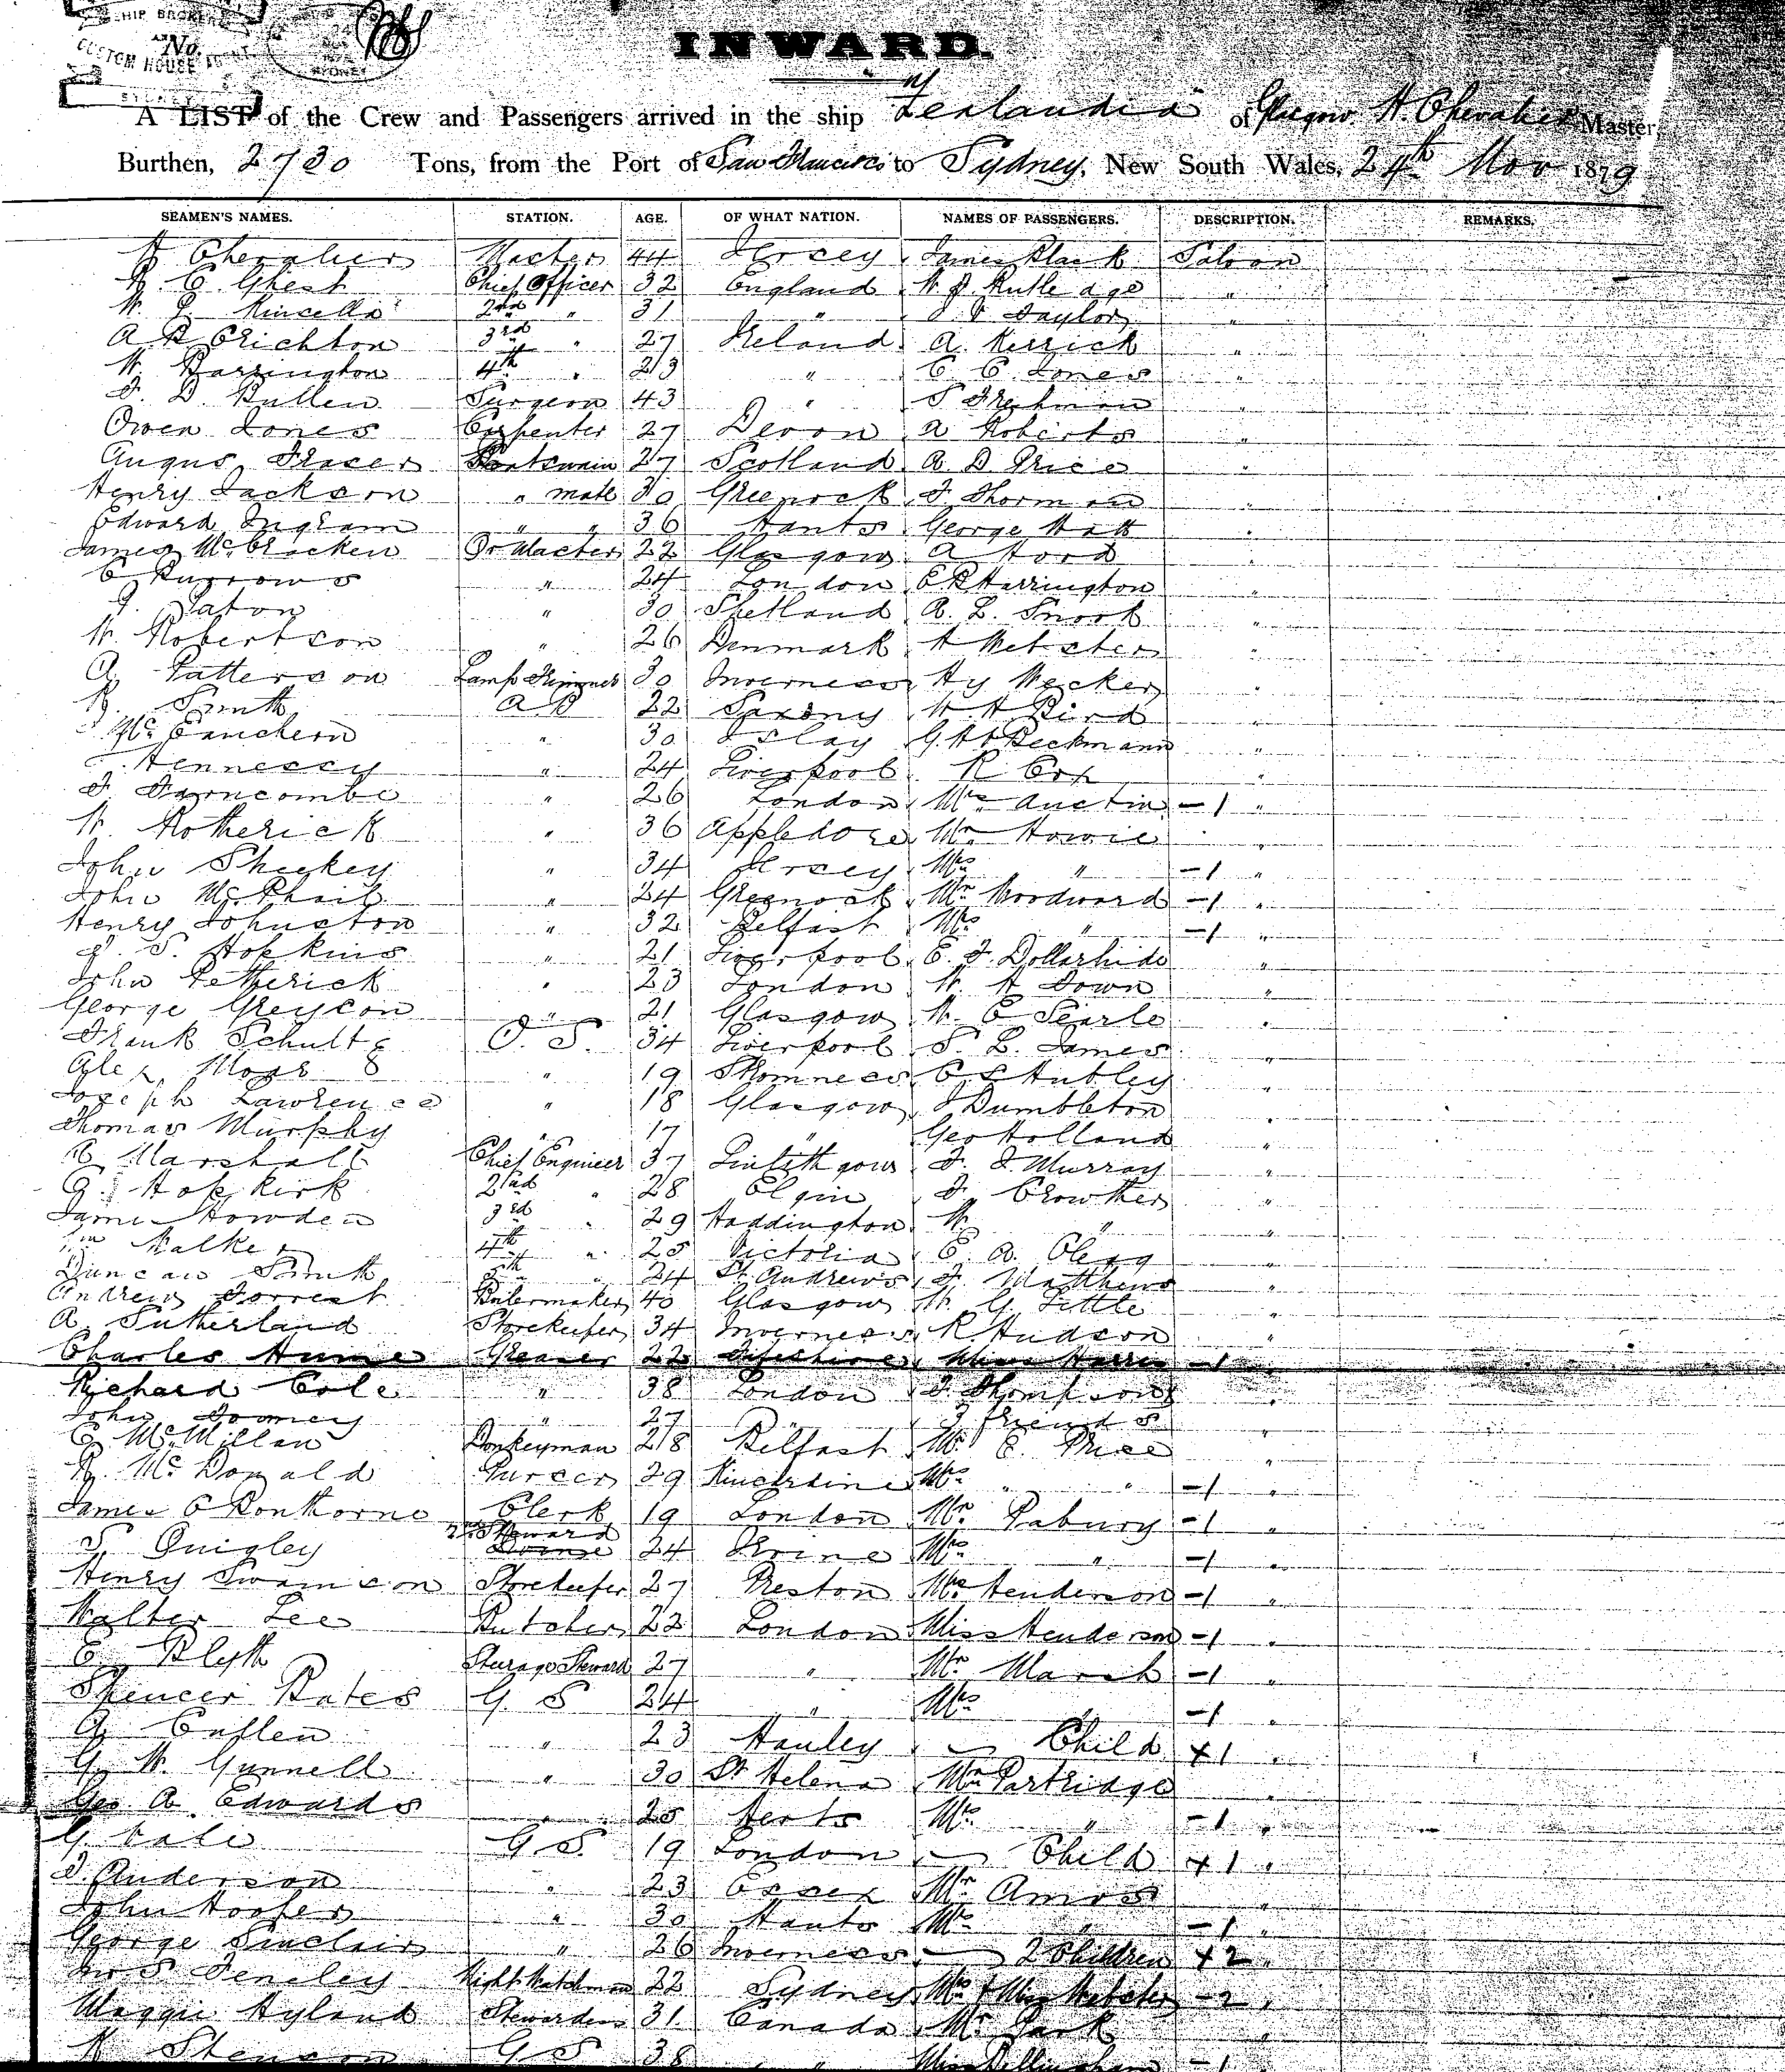 SHIP BROKER
AND
No.
CUSTOM HOUSE AGENT
SYDNEY
SYDNEY
INWARD.
A LIST of the Crew and Passengers arrived in the ship Zealandia of Glasgow H. Chevalier Master,
Burthen, 2730 Tons, from the Port of San Francisco to Sydney, New South Wales, 24th Nov 1879
SEAMEN'S NAMES. STATION. AGE. OF WHAT NATION. NAMES OF PASSENGERS. DESCRIPTION. REMARKS.
H Chevalier Master 44 Jersey James Black Saloon
R. C. Ghest Chief Officer 32 England W. J. Rutledge "
W. 2nd " 31 " Taylor "
A B Crichton 3rd " 27 Ireland A. Kerrick "
W. Barrington 4th " 23 " C. C. Jones "
D. Bullen Surgeon 43 " S "
Owen Jones Carpenter 27 Devon A Roberts "
Angus Fraser Boatswain 27 Scotland A D Price "
Henry Jackson " mate 30 Greenock J. Thorman "
Edward Ingram " " 36 Hants George Hatt "
James McCracken Qr Master 22 Glasgow A Ford "
C. Burrows " 24 London C B Harrington "
J. Paton " 30 Shetland A. L. Snook "
W. Robertson " 26 Denmark H Webster "
A. Patterson Lamp Trimmer 30 Inverness Hy Wecker "
R. Smith A B 22 Saxony W H Bird "
McEanchern " 30 Islay G. H. Beckmann "
Hennessy " 24 Liverpool R Cox "
J. Farncombe " 26 London Mrs Austin -1 "
W. Rotherick " 36 Appledore Mr Howie "
John Sheekey " 34 Jersey Mrs " -1 "
John McPhail " 24 Greenock Mr Woodward -1 "
Henry Johnston " 32 Belfast Mrs " -1 "
J. S. Hopkins " 21 Liverpool E. J. Dollarhide "
John Petherick " 23 London W. H Down "
George Greyson " 21 Glasgow W. C Searle "
Frank Schultz O. S. 34 Liverpool S. L. James "
Alex, Moar " 19 Stromness C S Hubley "
Joseph Lawrence " 18 Glasgow J Dumbleton "
Thomas Murphy " 17 " Geo Holland "
C. Marshall Chief Engineer 37 Linlithgow J. J. Murray "
G. Hopkirk 2nd " 28 Elgin J. Crowther "
James Howden 3rd " 29 Haddington W. " "
Wm Walker 4th " 25 Victoria C. A. Clegg "
Duncan Smith 5th " 24 St Andrews J. Matthews "
Andrew Forrest Boilermaker 40 Glasgow W. G. Little "
A. Sutherland Storekeeper 34 Inverness R. Hudson "
Charles Hume Greaser 22 Fifeshire Miss Harris -1
Richard Cole " 38 London J. Thompson "
John Toomey " 27 " 3 friends "
C. McMillan Donkeyman 28 Belfast Mr C. Price "
R. McDonald Purser 29 Kincardine Mrs " " -1 "
James C Bonthorne Clerk 19 London Mr Pabury -1 "
S. Quigley 2nd Steward 24 Irvine Mrs " -1 "
Henry Swainson Storekeeper 27 Preston Mrs Henderson -1 "
Walter Lee Butcher 22 London Miss Henderson -1 "
C. Blyth Sturage Steward 27 " Mr Marsh -1 "
Spencer Bates G S 24 " Mrs " -1 "
A. Cullen " 23 Hanley Child +1 "
G. W. Gunnell " 30 St Helena Mr Partridge
Geo A. Edwards " 25 Herts Mrs " -1 "
G. Cale G S. 19 London Child +1 "
J. Anderson " 23 Essex Mr Amos "
John Hooper " 30 Hants Mrs " -1 "
George Sinclair " 26 Inverness 2 Children +2 "
Feneley Night Watchman 22 Sydney Mrs & Miss Webster -2 "
Maggie Hyland Stewardess 31 Canada Mr Park "
Stenson G S 38 " Miss Bellingham -1